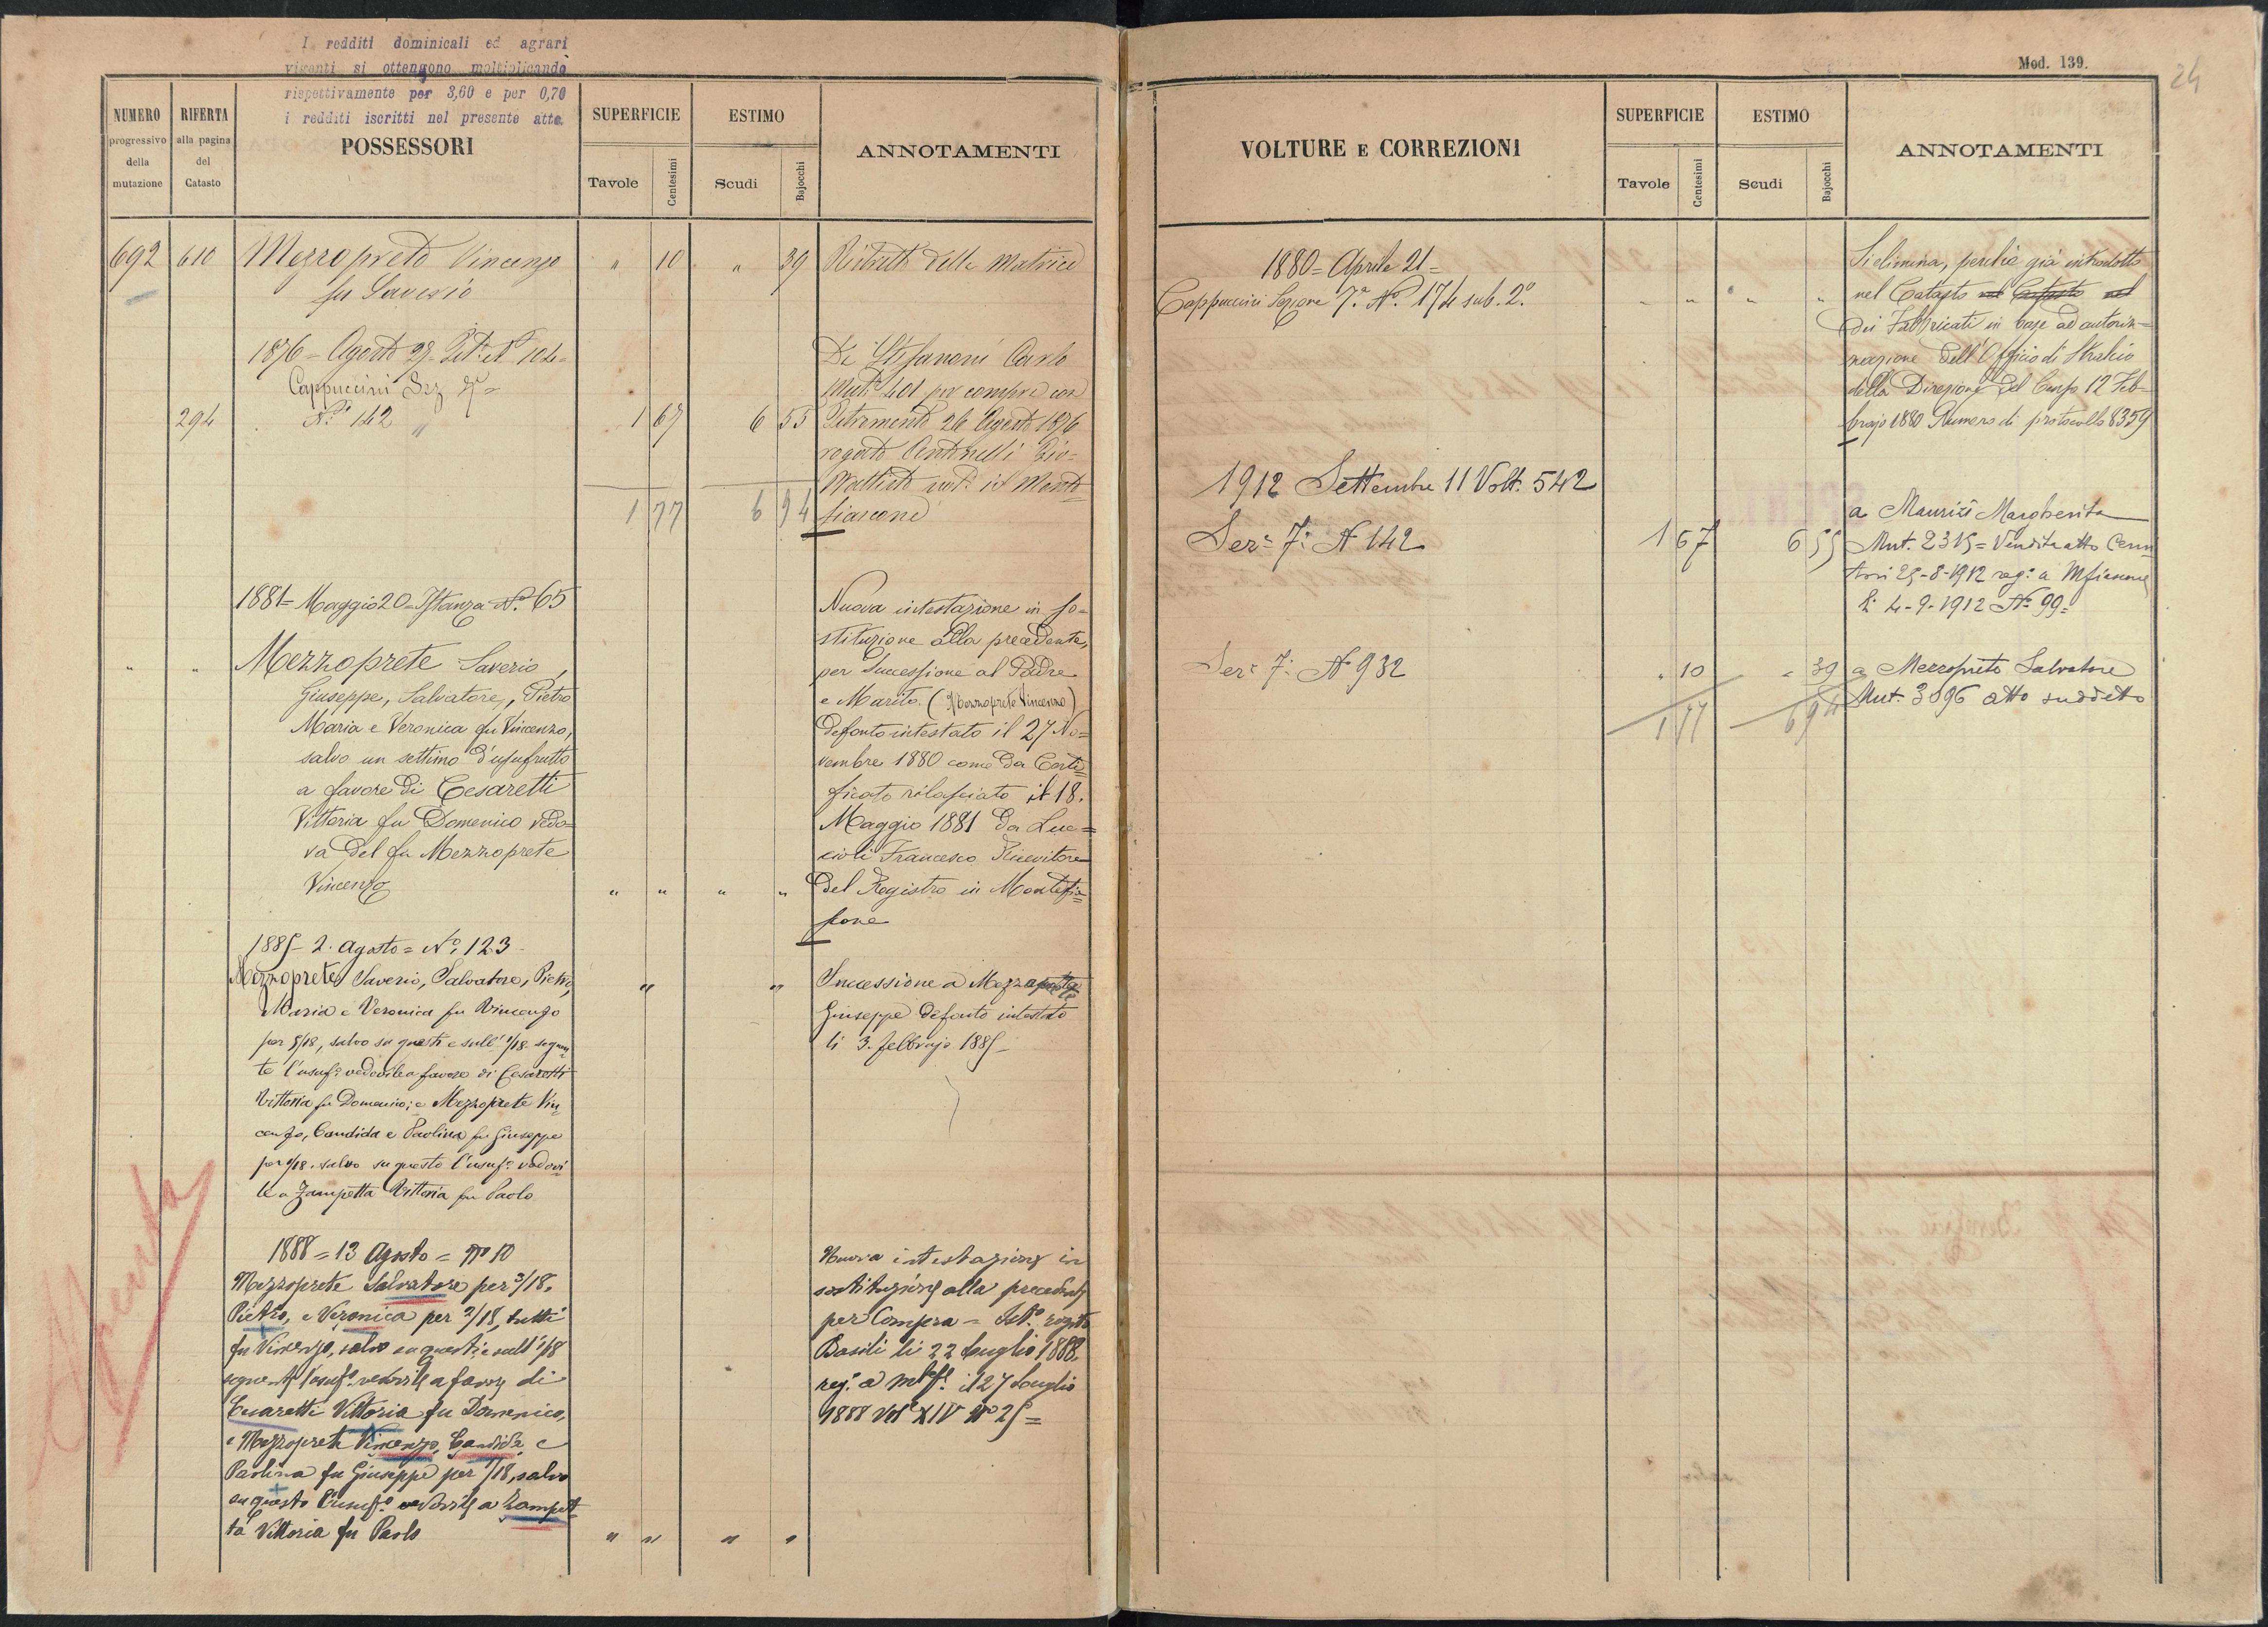 I redditi dominicali ed agrari
vigenti si ottengono moltiplicando
rispettivamente per 3,60 e per 0,70
i redditi iscritti nel presente atto.
NUMERO
progressivo
della
mutazione
RIFERTA
alla pagina
del
Catasto
POSSESSORI
SUPERFICIE
Tavole
Centesimi
ESTIMO
Scudi
Bajocchi
ANNOTAMENTI
692 610 Mezzoprete Vincenzo " 10 " 39
fu Saverio
1876 = Agosto 29
Cappuccini Sez 7ª
294 Nº 142 1 67 6 55
1 77 6 94
Di Stefanoni Carlo
Mutª 401 per compra con
Istromento 26 Agosto 1876
rogato Antonelli Gio=
Battista
fiascone
1881 = Maggio 20 = Istanza Nº 65
" " Mezzoprete Saverio,
Giuseppe, Salvatore, Pietro
Maria e Veronica fu Vincenzo,
salvo un settimo d'usufrutto
a favore di Cesaretti
Vittoria fu Domenico vedo=
va del fu Mezzoprete
Vincenzo " " " "
Nuova intestazione in so=
stituzione alla precedente,
per Successione al Padre
e Marito (Mezzoprete Vincenzo)
defonto intestato il 27 No=
vembre 1880 come da Certi=
ficato rilasciato il 18.
Maggio 1881 da Luc=
cioli Francesco Ricevitore
del Registro in Montefia=
scone
1885 - 2. Agosto = Nº 123
Mezzoprete Saverio, Salvatore, Pietro, " "
Maria e Veronica fu Vincenzo
per 5/18, salvo su questi e sull' 1/18 seguen=
te l'usufº vedovile a favore di Cesaretti
Vittoria fu Domenico; e Mezzoprete Vin=
cenzo, Candida e Paolina fu Giuseppe
per 1/18. salvo su questo l'usufº vedovi=
le a Zampetta Vittoria fu Paolo
Successione a
Giuseppe defonto intestato
li 3. febbrajo 1885 -
1888 = 13 Agosto = Nº 10
Mezzoprete Salvatore per 3/18.
Pietro, e Veronica per 2/18, tutti
fu Vincenzo, salvo su questi e sull' 1/18
seguente l'usufº vedovile a favore di
Cesaretti Vittoria fu Domenico,
e Mezzoprete Vincenzo, Candida, e
Paolina fu Giuseppe per 1/18, salvo
su questo l'usufº vedovile a Zampet=
ta Vittoria fu Paolo " " " "
Nuova intestazione in
sostituzione alla precedente
per Compra = Istº rogito
Basili li 22 Luglio 1888.
reg. a il 27 Luglio
1888 Vol XIV Nº 25 =
Mod. 139.
24
VOLTURE E CORREZIONI
SUPERFICIE
Tavole
Centesimi
ESTIMO
Scudi
Bajocchi
ANNOTAMENTI
1880 = Aprile 21 =
Cappuccini Sezione 7ª Nº 174 sub. 2º " " " "
Si elimina, perchè già introdotto
nel Catasto nel Catasto nel
dei Fabbricati in base ad autoriz=
zazione dell'Officio di Stralcio
della Direzione del Censo 12 Feb=
brajo 1880 Numero di protocollo 8359
1912 Settembre 11 Volt. 542
Sezª 7ª Nº 142 1 67 6 55
a Maurizi Margherita
Mut. 2315 = Vendita atto
25-8-1912 regº a
li 4-9-1912 Nº 99 =
Sezª 7ª Nº 932 " 10 " 39
1 77 6 94
a Mezzoprete Salvatore
Mut. 3096 atto suddetto